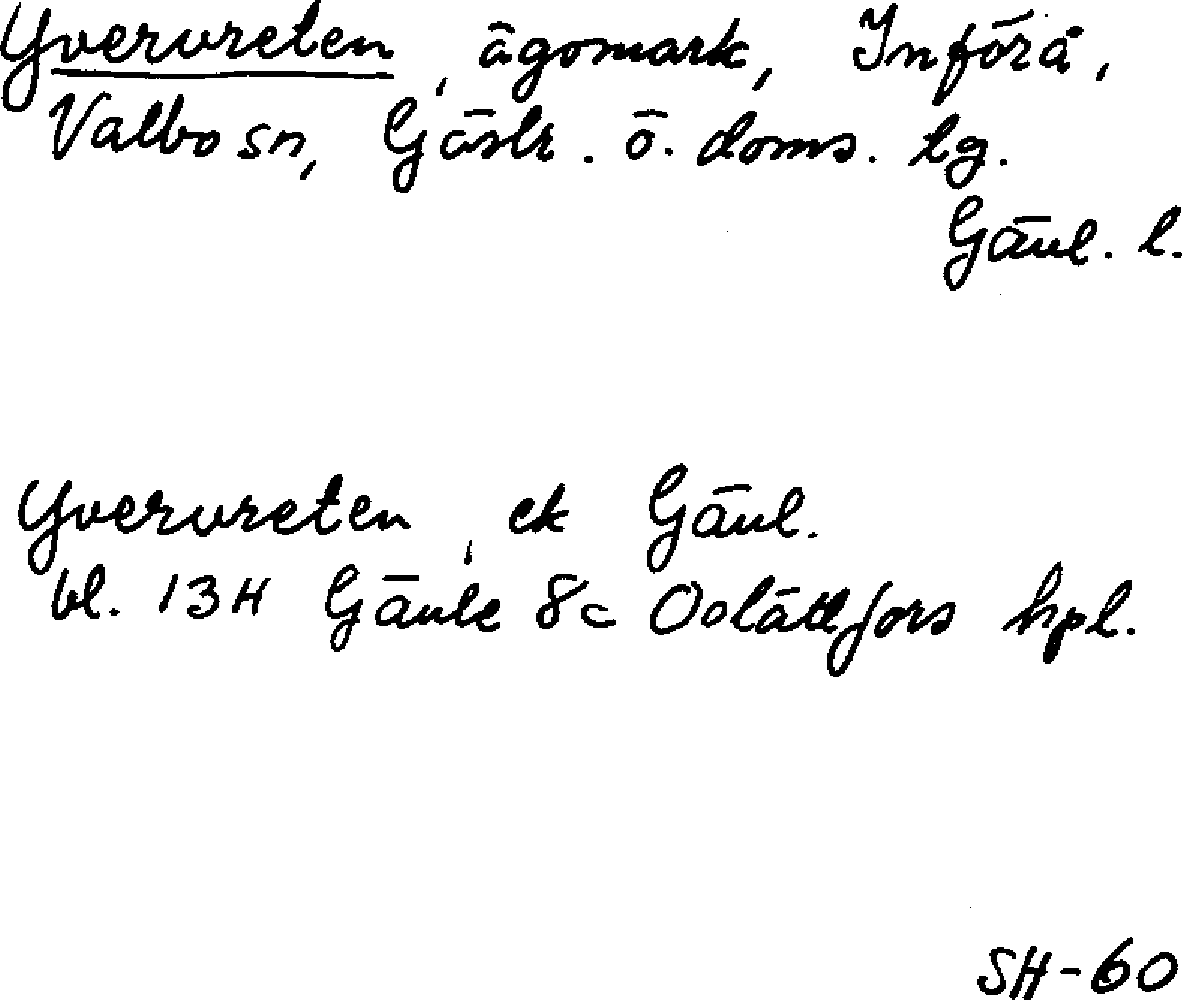 Yvervreten, ägomark, Införå,
Valbo sn, Gästr. ö. doms. lg.
Gävl. l.
Yvervreten, ek Gävl.
bl. 13H Gävle 8c Oslättfors hpl.
SH-60